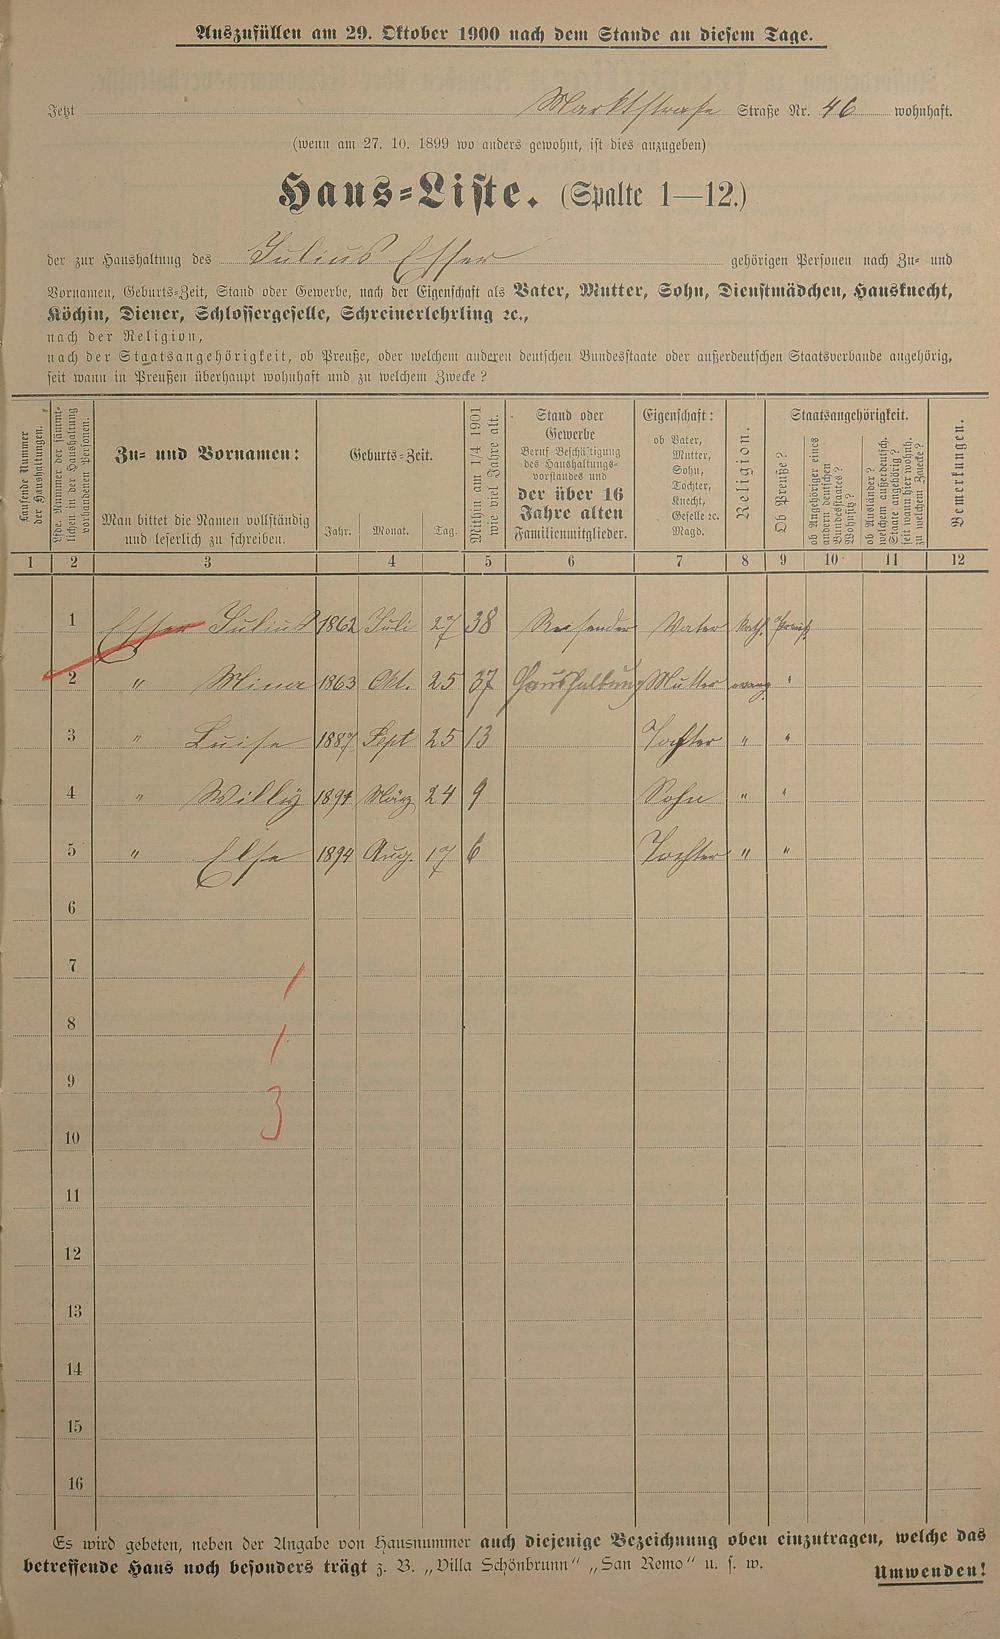 Auszufüllen am 29. Oktober 1900 nach dem Stande an diesem Tage.
Jetzt Marktstraße Straße Nr. 46 wohnhaft.
(wenn am 27. 10. 1899 wo anders gewohnt, ist dies anzugeben)
Haus-Liste. (Spalte 1—12.)
der zur Haushaltung des Julius Esser gehörigen Personen nach Zu- und
Vornamen, Geburts-Zeit, Stand oder Gewerbe, nach der Eigenschaft als Vater, Mutter, Sohn, Dienstmädchen, Hausknecht,
Köchin, Diener, Schlossergeselle, Schreinerlehrling ꝛc.,
nach der Religion,
nach der Staatsangehörigkeit, ob Preuße, oder welchem anderen deutschen Bundesstaate oder außerdeutschen Staatsverbande angehörig,
seit wann in Preußen überhaupt wohnhaft und zu welchem Zwecke?
Laufende Nummer
der Haushaltungen.
Lfde. Nummer der sämmt-
lichen in der Haushaltung
vorhandenen Personen.
Zu- und Vornamen:
Man bittet die Namen vollständig
und leserlich zu schreiben.
Geburts-Zeit.
Jahr. Monat. Tag.
Mithin am 1/4 1901
wie viel Jahre alt.
Stand oder
Gewerbe
Beruf Beschäftigung
des Haushaltungs-
vorstandes und
der über 16
Jahre alten
Familienmitglieder.
Eigenschaft:
ob Vater,
Mutter,
Sohn,
Tochter,
Knecht,
Geselle ꝛc.
Magd.
Religion.
Staatsangehörigkeit.
Ob Preuße?
ob Angehöriger eines
andern deutschen
Bundesstaates?
Wohnsitz?
ob Ausländer?
welchem außerdeutsch.
Staate angehörig?
seit wann hier wohnh.
zu welchem Zwecke?
Bemerkungen.
1 2 3 4 5 6 7 8 9 10 11 12
1 Esser Julius 1862 Juli 27 38 Reisender Vater kath. Preuß
2 " Mina 1863 Okt. 25 37 Haushaltung Mutter evang. "
3 " Luise 1887 Sept 25 13 Tochter " "
4 " Willy 1891 März 24 9 Sohn " "
5 " Else 1894 Aug. 17 6 Tochter " "
6
7
1
8
1
9
3
10
11
12
13
14
15
16
Es wird gebeten, neben der Angabe von Hausnummer auch diejenige Bezeichnung oben einzutragen, welche das
betreffende Haus noch besonders trägt z. B. „Villa Schönbrunn" „San Remo" u. s. w.
Umwenden!